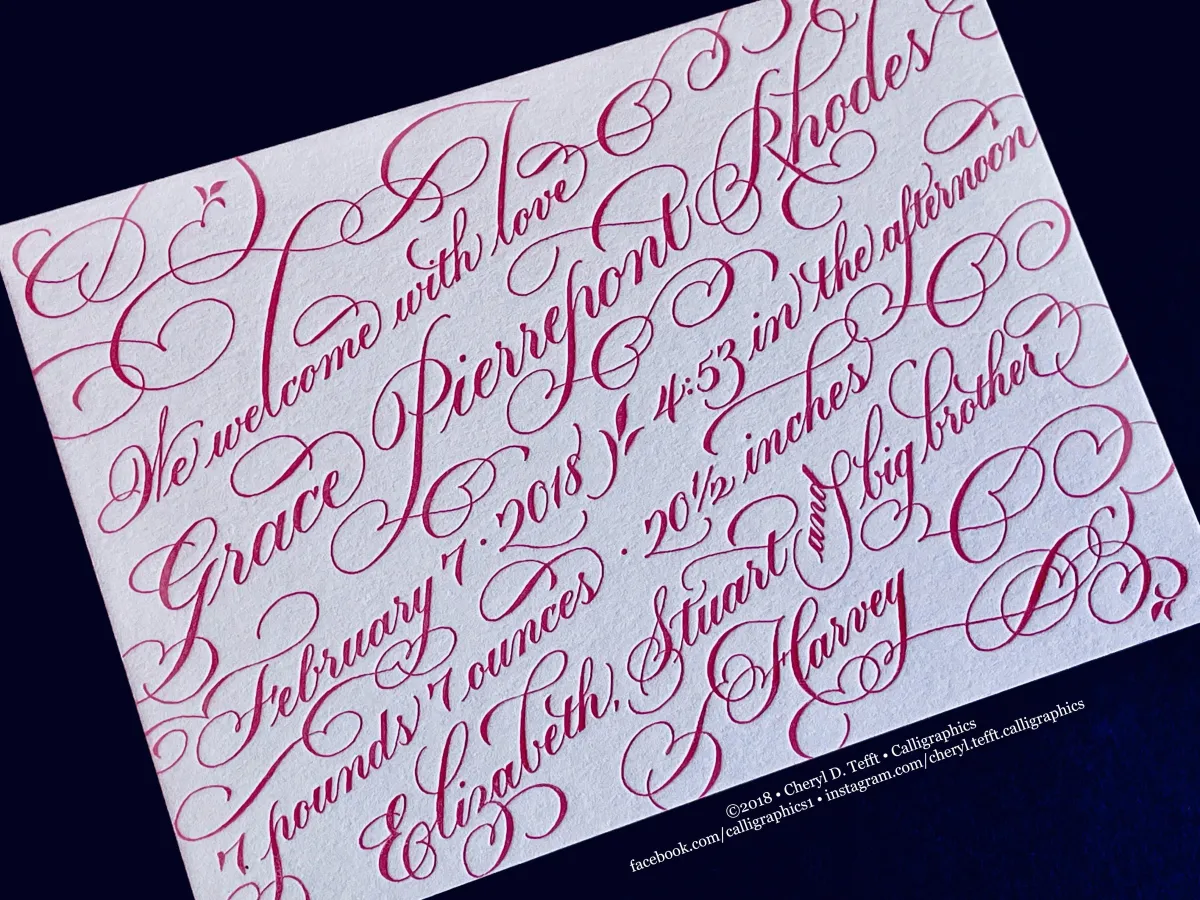 We welcome with love
Grace Pierrepont Rhodes
February 7 · 2018 4:53 in the afternoon
7 pounds 7 ounces · 20 1/2 inches
Elizabeth, Stuart and big brother
Harvey
©2018 • Cheryl D. Tefft • Calligraphics
facebook.com/calligraphics1 • instagram.com/cheryl.tefft.calligraphics